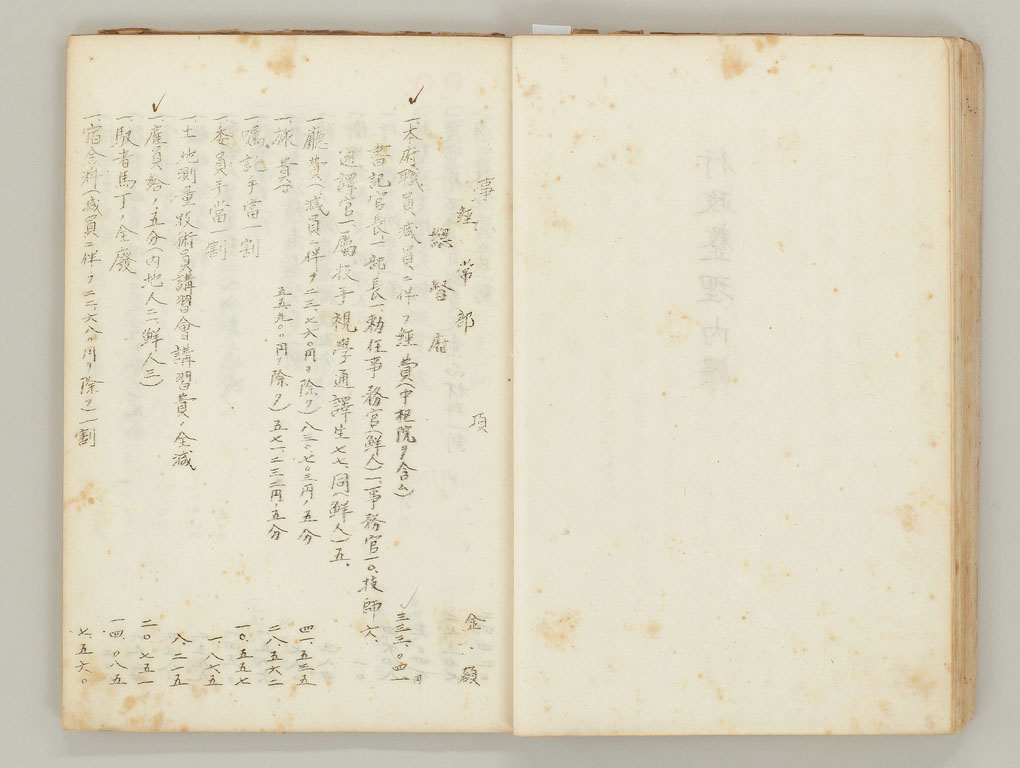 事 項 金額
經常部
總督府
一、本府職員減員ニ伴フ經費(中樞院ヲ含ム) 三三三、〇四一円
書記官長一、部長一、勅任事務官(鮮人)一、事務官一〇、技師六、
通譯官一、屬技手視學通譯生七七、同(鮮人)五、
一、廳費(減員ニ伴フ二三、七六〇円ヲ除ク)八三〇、七〇三円ノ五分 四一、五三五
一、旅費(〃 五五、九〇〇円ヲ除ク)五七一、二三三円ノ五分 二八、五六二
一、囑託手當一割 一〇、五五七
一、委員手當一割 一、八七五
一、土地測量技術員講習會講習費ノ全減 八、二一五
一、雇員給ノ五分(内地人二、鮮人三) 二〇、七五一
一、馭者馬丁ノ全廢 一四、〇八五
一、宿舍料(減員ニ伴フ二二、六八〇円ヲ除ク)一割 七、五六〇
行政整理内譯